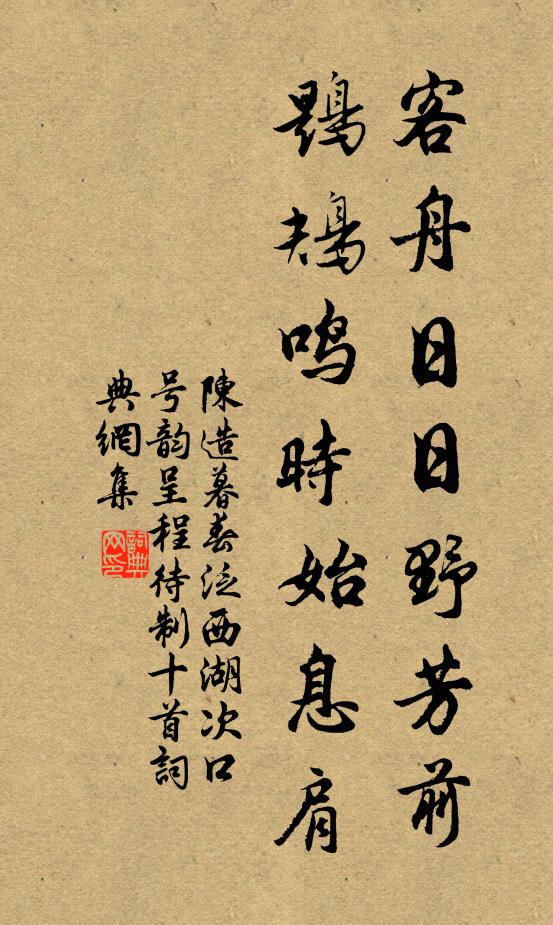 客舟日日野芳前
鶗鳺鳴時始息肩
陳造暮春泛西湖次口
号韵呈程待制十首詞
典網集
詞典
网印